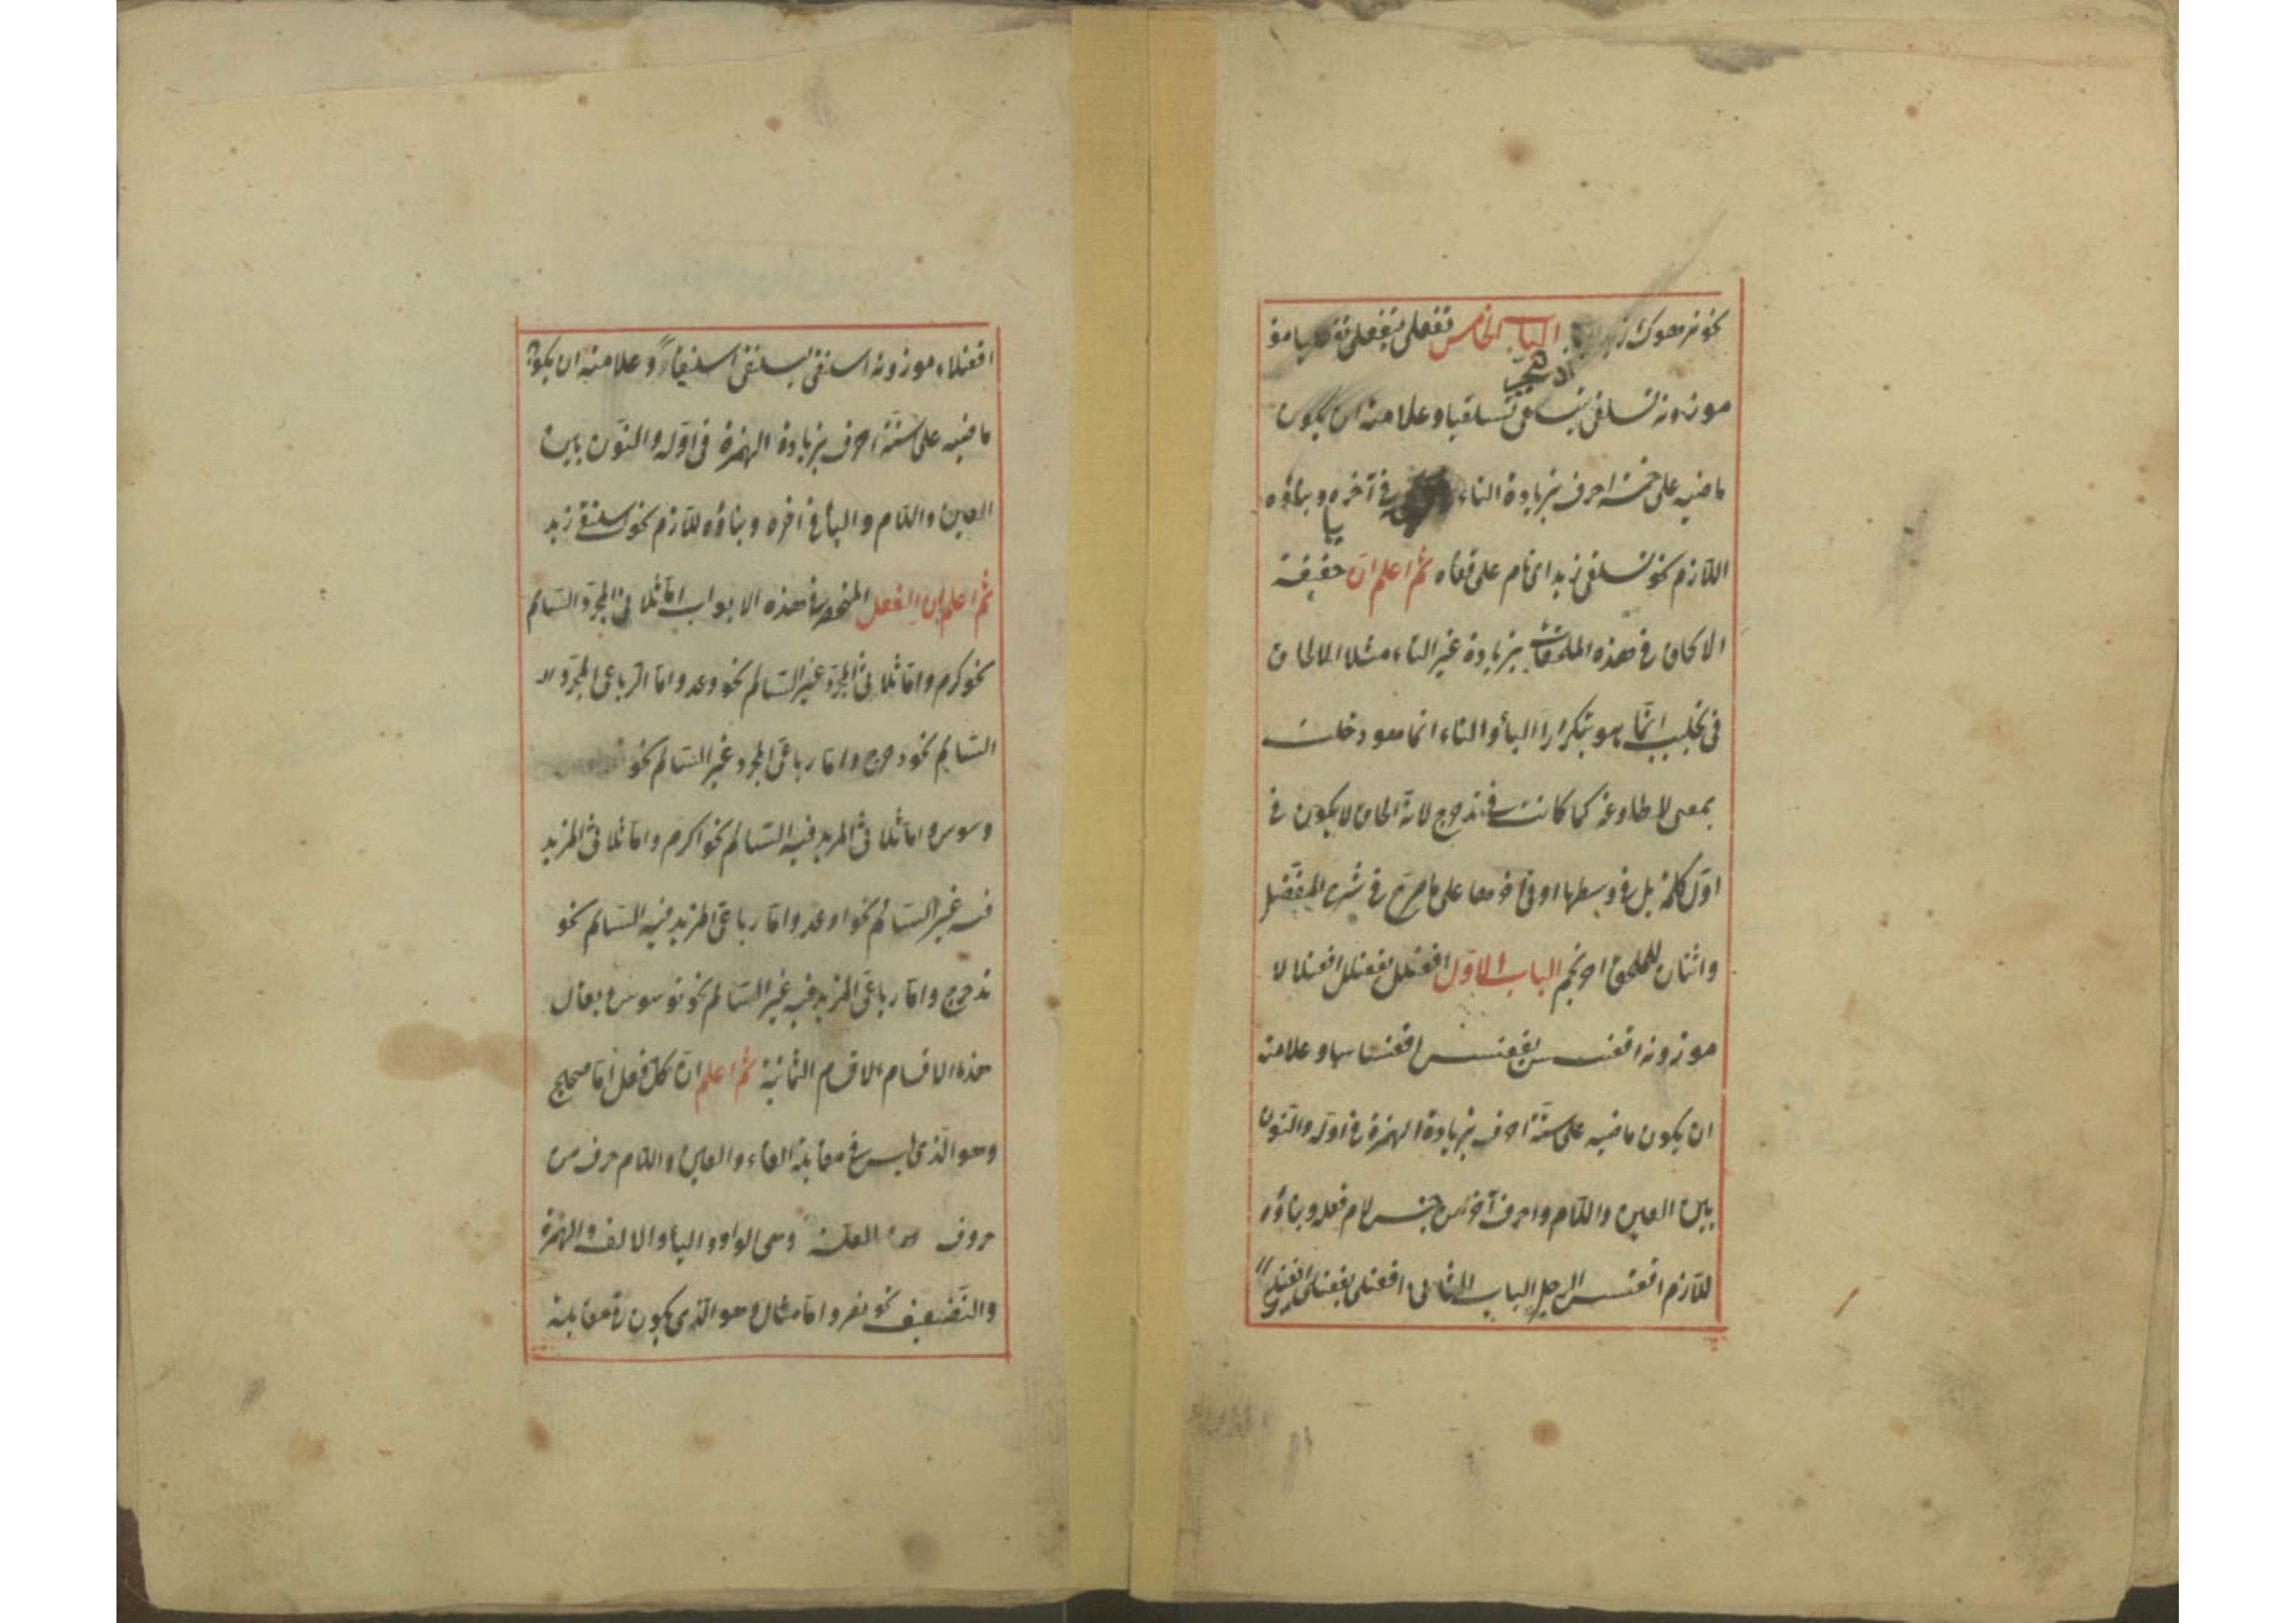 نحو ترهوك زيد الباب الخامس تفعلى يتفعلى تفعليا مو
اى تبختر
موزونه تسلقى يتسلقى تسلقيا وعلامته ان يكون
ماضيه على خمسة احرف بزيادة التاء فى آخره وبناؤه
اللازم نحو تسلقى زيد اى نام على قفاه ثم اعلم ان حقيقة
الالحاق فى هذه الملحقات بزيادة غير التاء مثلا الالحاق
فى تجلبب انما هو بتكرار الباء والتاء انما هو دخلت
بمعنى لمطاوعة كما كانت فى تدحرج لان الحاق لا يكون فى
اول كلمة بل فى وسطها او فى آخرها على ما صرح فى شرح المفصل
واثنان للملحق احرنجم الباب الاول افعنلل يفعنلل افعنلالا
موزونه اقعنسس يقعنسس اقعنساسا وعلامته
ان يكون ماضيه على ستة احرف بزيادة الهمزة فى اوله والنون
بين العين واللام واحرف آخر من جنس لام فعله وبناؤه
للازم اقعنسس الرجل الباب الثانى افعنلى يفعنلى
افعنلاء موزونه اسلنقى يسلنقى اسلنقاءً وعلامته ان يكون
ماضيه على ستة احرف بزيادة الهمزة فى اوله والنون بين
العين واللام والياء فى آخره وبناؤه للازم نحو اسلنقى زيد
ثم اعلم ان الفعل المنحصر فى هذه الابواب اما ثلاثى المجرد السالم
نحو كرم واما ثلاثى المجرد غير السالم نحو وعد واما الرباعى المجرد الـ
السالم نحو دحرج واما رباعى المجرد غير السالم نحو
وسوس اما ثلاثى المزيد فيه السالم نحو اكرم واما ثلاثى المزيد
فيه غير السالم نحو اوعد واما رباعى المزيد فيه السالم نحو
تدحرج واما رباعى المزيد فيه غير السالم نحو توسوس يقال
هذه الاقسام الاقسام الثمانية ثم اعلم ان كل فعل اما صحيح
وهو الذى ليس فى مقابلة الفاء والعين واللام حرف من
حروف العلة وهى الواو والياء والالف والهمزة
والتضعيف نحو نصر واما مثال وهو الذى يكون فى مقابلة